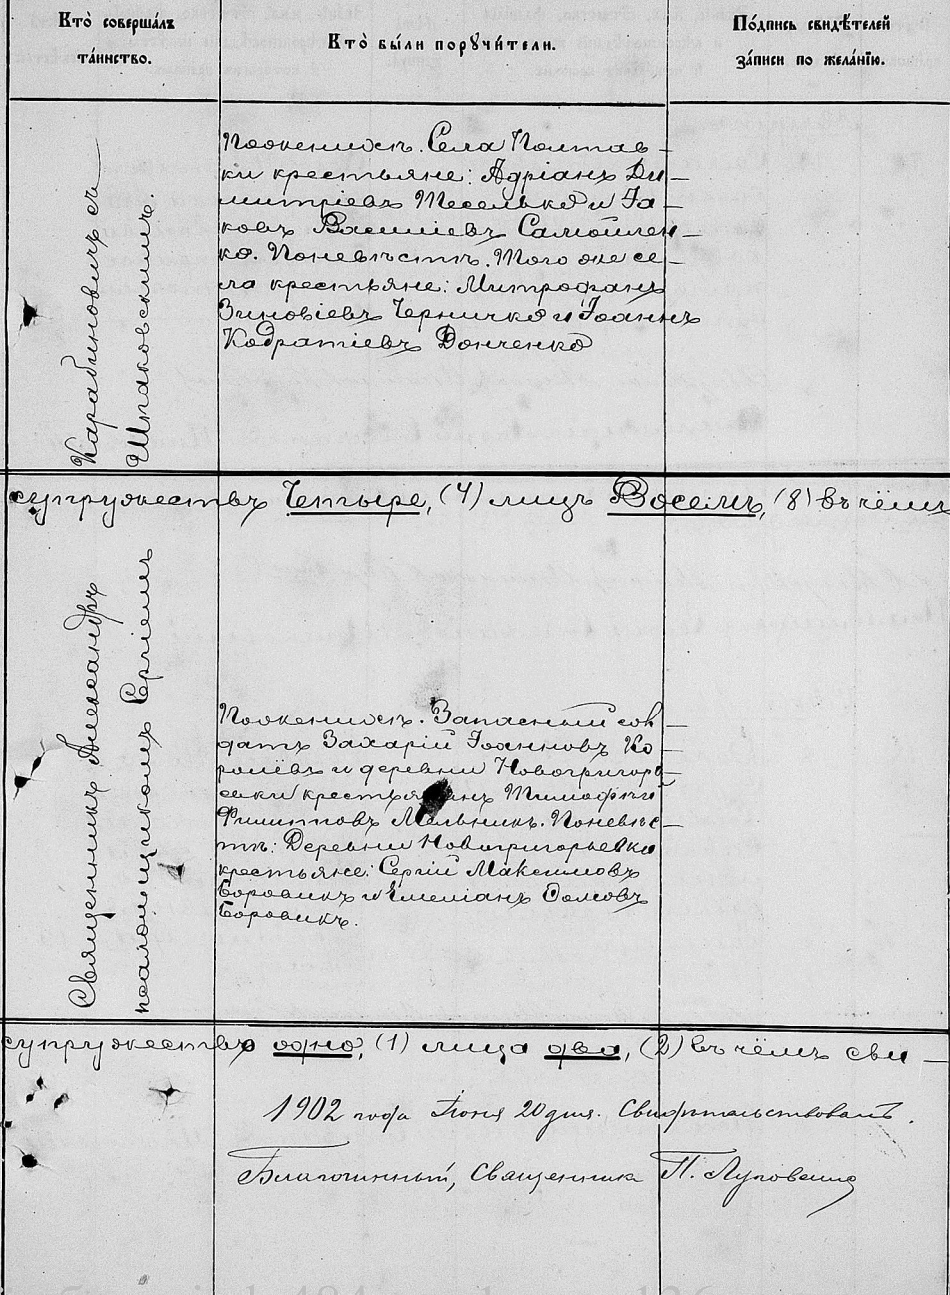 Кто̀ совершалъ
та́инство.
Кто̀ бы́ли порꙋчи́тели.
По́дпись свидѣ́телей
за́писи по жела́нїю.
По женихѣ. Села Полтав-
ки крестьяне: Адріанъ Ди-
митріевъ Теселько и Іа-
ковъ Василіевъ Самойлен-
ко. По невѣстѣ. Того же се-
ла крестьяне: Митрофанъ
Зиновіевъ Черничко и Іоаннъ
Кодратіевъ Донченко
Карабиновичъ съ
Шпаковскимъ
супружествъ Четыре, (4) лицъ Восемь, (8) въ чёмъ
Священникъ Александръ
псаломщикомъ Сергіемъ
По женихѣ. Запасный сол-
датъ Захарій Іоанновъ Ко-
ролёвъ и деревни Новогригорь-
евки крестьянинъ Тимофѣй
Филипповъ Мельникъ. По невѣс-
тѣ: Деревни Новогригорьевки
крестьяне: Сергій Максимовъ
Боровикъ и Емеліанъ Савовъ
Боровикъ.
супружествъ одно, (1) лица два, (2) въ чёмъ сви-
1902 года Іюня 20 дня. Свидѣтельствовалъ.
Благочинный, Священникъ П.